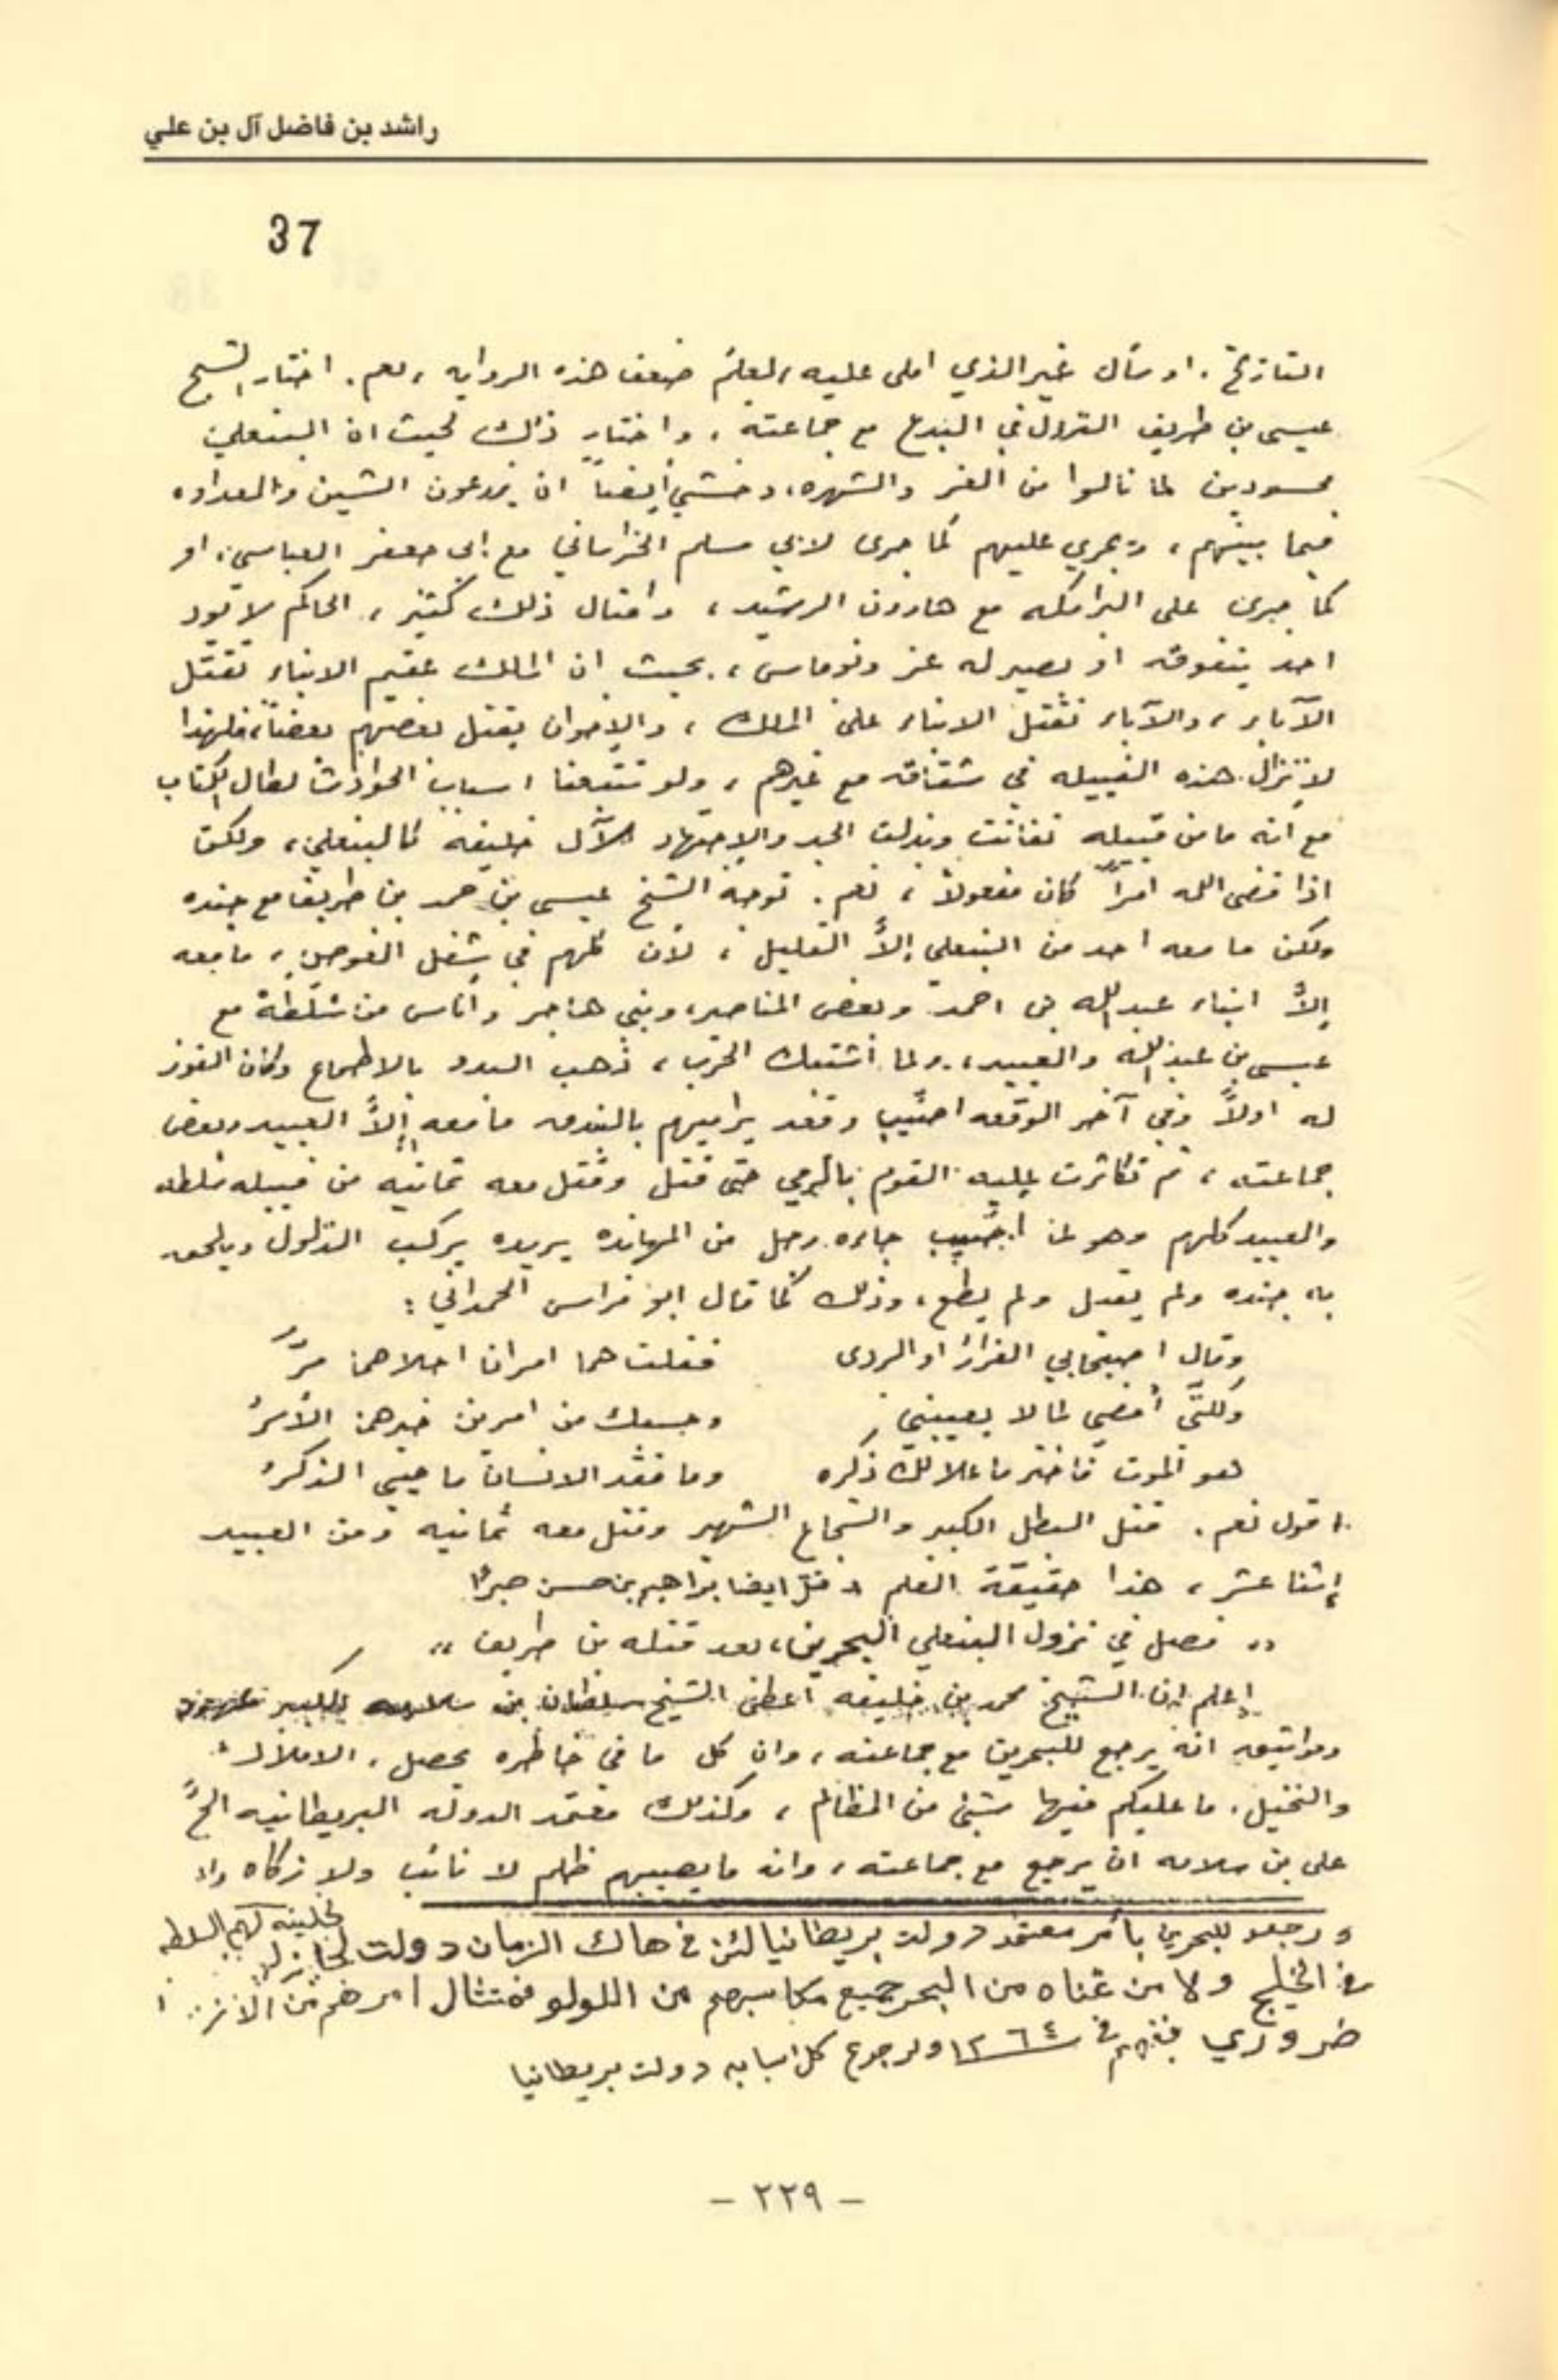 راشد بن فاضل آل بن علي
37
التاريخ. او سأل غير الذي املى عليه، لعلم ضعف هذه الروايه، نعم. اختار الشيخ
عيسى بن طريف النزول في البدع مع جماعته، واختار ذلك لحيث ان البنعلي
محسودين لما نالوا من العز والشهره، وخشي أيضاً ان يزرعون الشين والعداوه
فيما بينهم، ويجري عليهم كما جرى لابي مسلم الخراساني مع ابي جعفر العباسي، او
كما جرى على البرامكه مع هارون الرشيد، وامثال ذلك كثير، الحاكم لا يود
احد يتفوقه او يصير له عز ونوماس، بحيث ان الملك عقيم الابناء تقتل
الآباء، والآباء تقتل الابناء على الملك، والاخوان يقتل بعضهم بعضاً، فلهذا
لا تزال هذه القبيله في شقاق مع غيرهم، ولو تتبعنا اسباب الحوادث لطال الكتاب
مع انه ما من قبيله تفانت وبذلت الجد والاجتهاد لآل خليفه كالبنعلي، ولكن
اذا قضى الله امراً كان مفعولا، نعم. توجه الشيخ عيسى بن حمد بن طريف مع جنده
ولكن ما معه احد من البنعلي إلاَّ القليل، لأن كلهم في شغل الغوص، ما معه
إلاَّ ابناء عبدالله بن احمد وبعض المناصير، وبني هاجر وأناس من شلطة مع
عيسى بن عبدالله والعبيد، ولما اشتبك الحرب، ذهب البدو بالاطماع وكان الفوز
له اولاً وفي آخر الوقعه اصيب وقعد يراميهم بالبندق ما معه إلاَّ العبيد وبعض
جماعته، ثم تكاثرت عليه القوم بالرمي حتى قتل وقتل معه ثمانيه من قبيله شلطه
والعبيد كلهم وهو لما جاءه رجل من المهانده يريده يركب الذلول ويلحق
به جنده ولم يقبل ولم يطع، وذلك كما قال ابو فراس الحمداني:
وقال اصيحابي الفرار او الردى فقلت هما امران احلاهما مرّ
ولكنّي أمضي لما لا يعيبني وحسبك من امرين خيرهما الأسرُ
هو الموت فاختر ما علا لك ذكره وما فقد الانسان ما حيي الذكرُ
اقول نعم. قتل البطل الكبير والشجاع الشهير وقتل معه ثمانيه ومن العبيد
إثنا عشر، هذا حقيقة العلم وقتل ايضا براهيم بن حسن
،، فصل في نزول البنعلي البحرين، بعد قتله بن طريف ،،
إعلم ان الشيخ محمد بن خليفه اعطى الشيخ سلطان بن سلامه الكبير عهود
ومواثيق انه يرجع للبحرين مع جماعته، وان كل ما في خاطره يحصل، الاملاك
والنخيل، ما عليكم فيها شيئ من المظالم، وكذلك معتمد الدوله البريطانيه الحَّ
على بن سلامه ان يرجع مع جماعته، وانه ما يصيبهم ظلم لا نائب ولا زكاه ولا
ورجعو للبحرين بأمر معتمد دولت بريطانيا لئن في هاك الزمان دولت لهم السلطه
في الخليج ولا من غناه من البحر جميع مكاسبهم من اللولو فمتثال امرهم من
ضروري في سنة ١٢٦٤ ولرجوع كل اسبابه دولت بريطانيا
– ٢٢٩ –